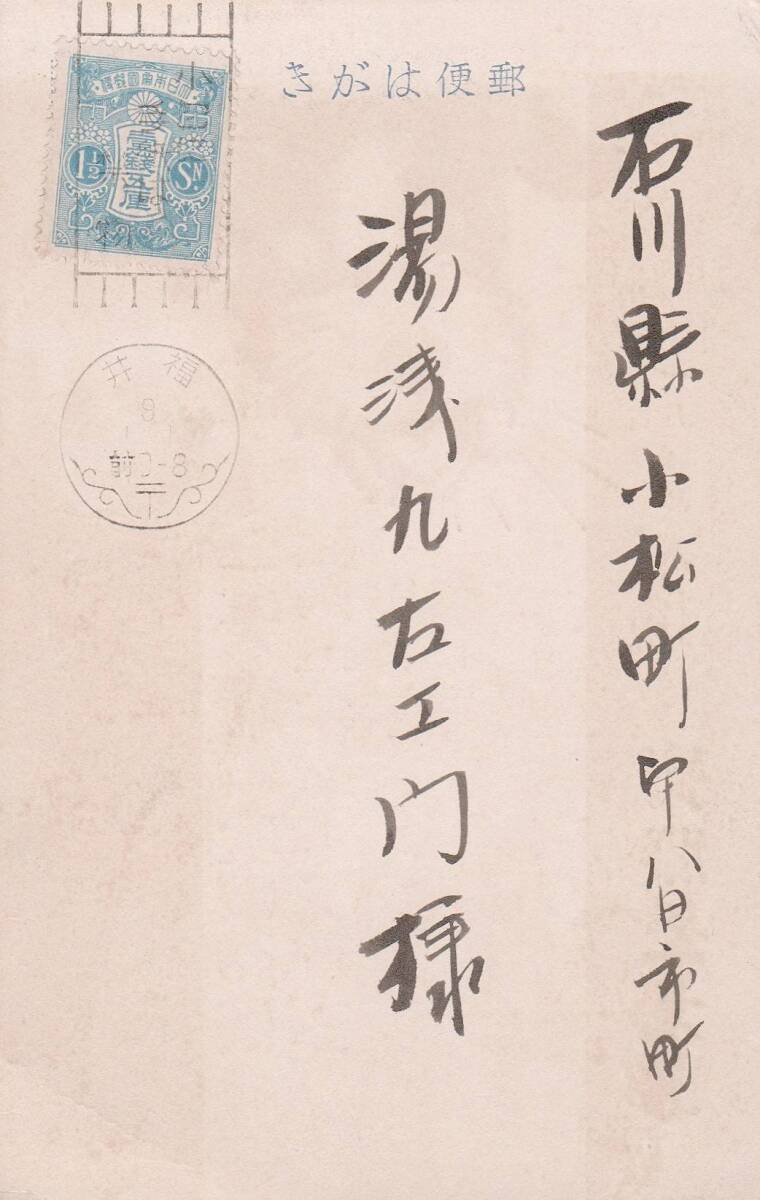 郵便はがき
石川縣小松町八日市町
湯浅九右エ門様
大日本帝國郵便
壹錢五厘
1½ Sɴ.
福井
9
前0-8